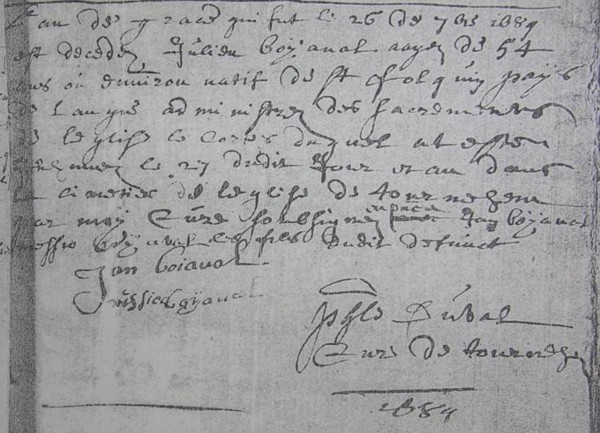 Lan de grace qui fut le 26 de 7bre 1689
est decedez Julien boyaval aagez de 54
ans ou environ natif de st folquin pays
de Langle administrez des sacremens
de leglise le corps duquel at esté
le 27 dudit Jour et an dans
la cimetiere de leglise de tournehem
par moy Curé soubsignez Jan boyaval
boyaval les fils dudit defunct
Jan boiaval
boyaval
Duval
Curé de tournehem
1689